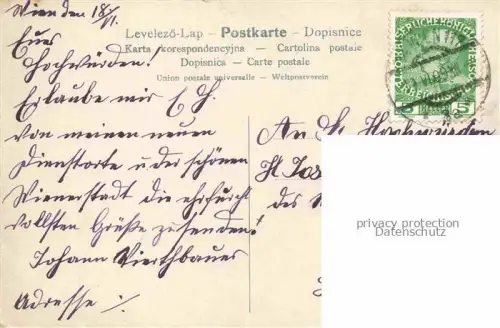 Wien den 18/VI.
Euer
Hochwürden!
Erlaube mir E. H.
von meinen neuen
Dienstorte u. der schönen
Wienerstadt die ehrfurcht
vollsten Grüße zu senden!
Johann Vierthbauer
Adresse ·/.
Levelező-Lap — Postkarte — Dopisnice
Karta korespondencyjna — Cartolina postale
Dopisnica — Carte postale
Union postale universelle — Weltpostverein
5 5
An Sr. Hochwürden
H Jos
des
privacy protection
Datenschutz